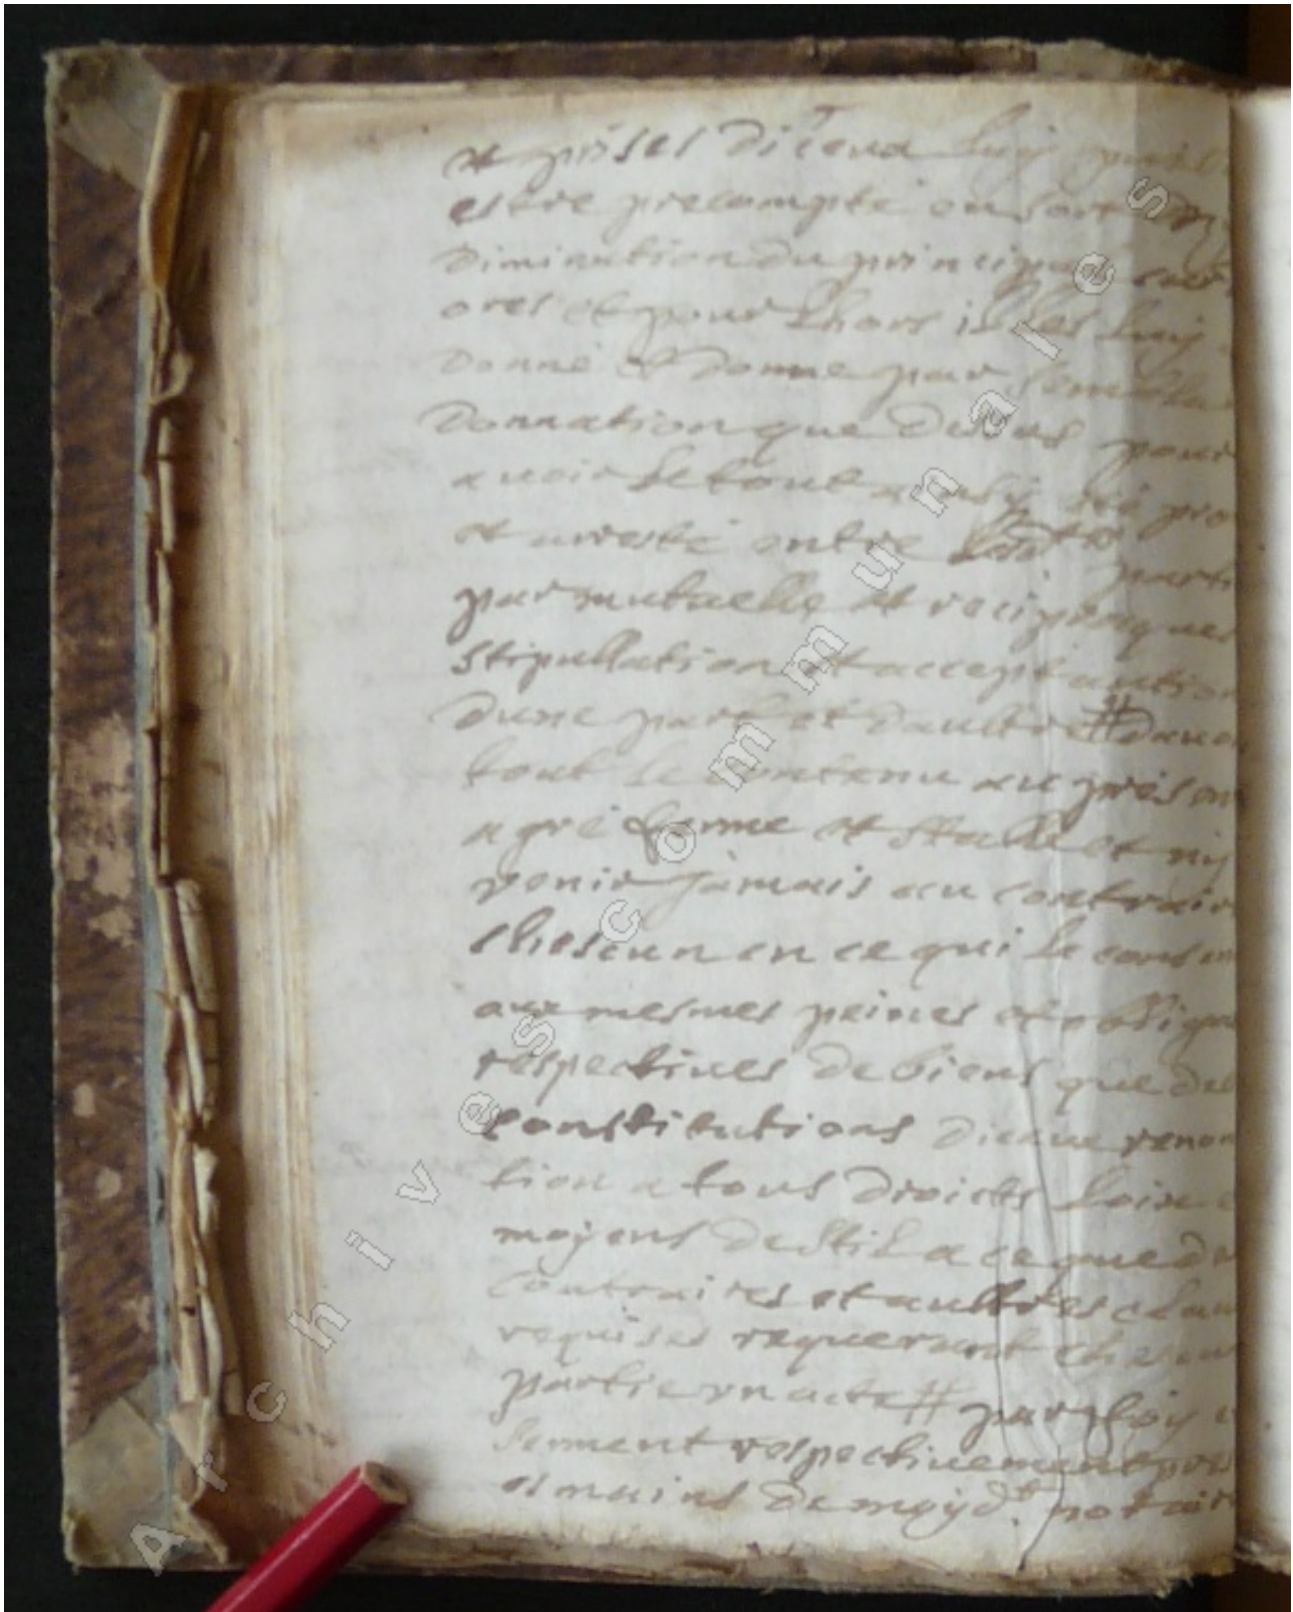 et prises diceux luy puis
estre precompté ou sort en
diminution du principal car
ores et pour lhors il les luy
donné et donne par semble
donnation que dessus pour
avoir le tout ainsy esté pro
et arresté entre parti
par mutuelle et reciproques
stipullation et acceptation
dune part et daultre # davoi
tout le contenu au presen
a gré ferme et stable et ny
venir jamais au contrair
chescun en ce qui le consern
aux mesmes peines et obliga
respectives de biens que des
constitutions dicelue renon
tion a tous droicts loix e
moyens de stil a ce que de
contraires et aultres clau
requises requerant chescun
partie en acte # par foy e
serment respectivement pres
es mains de moy dt notair
Archives communales